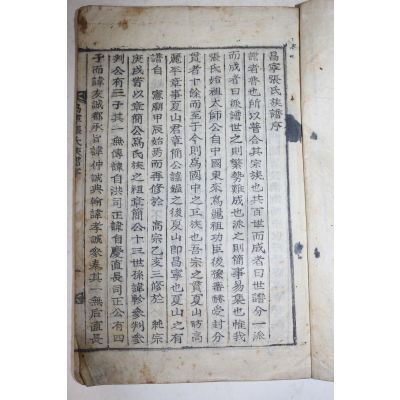 昌寧張氏族譜序
譜者普也所以普合其宗族也共百世而成者曰世譜分一派
而成者曰派譜世之則繁勢難成也派之則簡事易集也惟我
張氏始祖太師公自中國東來麗祖功臣後 受封分
貫者十餘而至于今則為國中之巨族也吾宗之貫夏山昉高
麗平章事夏山君章簡公諱 之後夏山即昌寧也夏山之有
譜自 憲廟甲辰始焉而再修於 高宗乙亥三修於 純宗
庚戌皆以章簡公為氏族之祖章簡公十三世孫諱 參判參
判公有三子其一無傳諱自洪司正諱自慶直長司正公有四
子而諱友誠都承旨諱仲誠典翰諱孝誠參奉其一無后直長
昌寧張氏族譜序